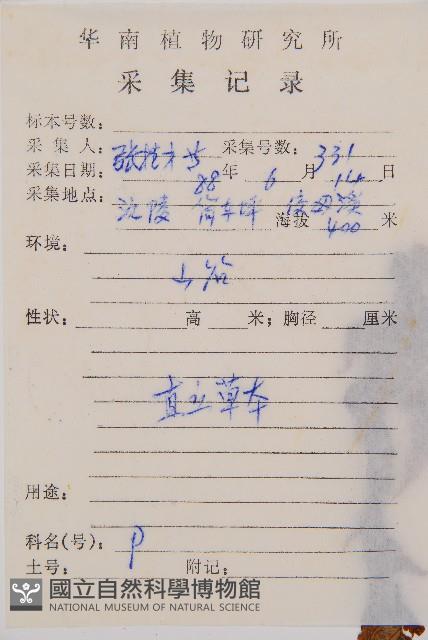 华南植物研究所
采集记录
标本号数：
采集人：张桂才等 采集号数：331
采集日期：88年6月14日
采集地点：沅陵
海拔 400 米
环境：
山谷
性状： 高 米；胸径 厘米
直立草本
用途：
科名(号)：P
土号： 附记：
國立自然科學博物館
NATIONAL MUSEUM OF NATURAL SCIENCE